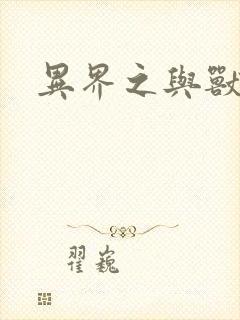 異界之與獸
翟巍